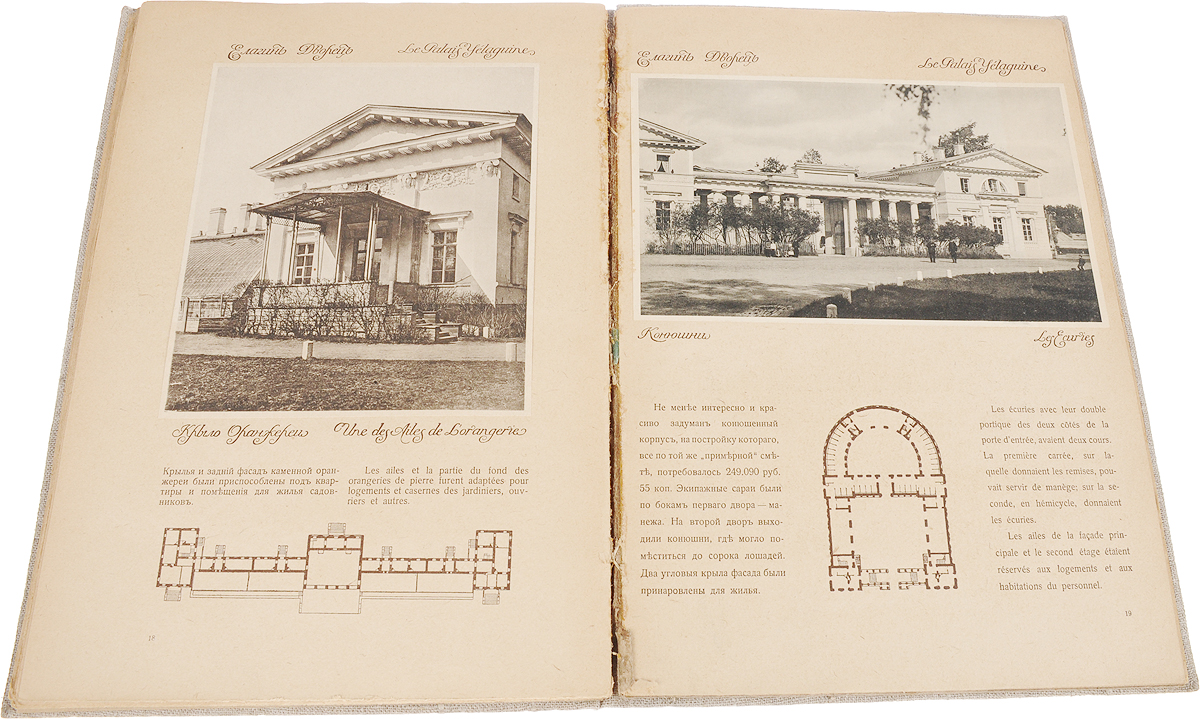 Елагинъ Дворецъ
Le Palais Yélaguine
Крыло Оранжереи
Une des Ailes de Lorangerie
Крылья и заднiй фасадъ каменной оран-
жереи были приспособлены подъ квар-
тиры и помѣщенiя для жилья садов-
никовъ.
Les ailes et la partie du fond des
orangeries de pierre furent adaptées pour
logements et casernes des jardiniers, ouv-
riers et autres.
18
Елагинъ Дворецъ
Le Palais Yélaguine
Конюшни
Les Ecuries
Не менѣе интересно и кра-
сиво задуманъ конюшенный
корпусъ, на постройку котораго,
все по той же „примѣрной“ смѣ-
тѣ, потребовалось 249,090 руб.
55 коп. Экипажные сараи были
по бокамъ перваго двора — ма-
нежа. На второй дворъ выхо-
дили конюшни, гдѣ могло по-
мѣститься до сорока лошадей.
Два угловыя крыла фасада были
принаровлены для жилья.
Les écuries avec leur double
portique des deux côtés de la
porte d'entrée, avaient deux cours.
La première carrée, sur la-
quelle donnaient les remises, pou-
vait servir de manège; sur la se-
conde, en hémicycle, donnaient
les écuries.
Les ailes de la façade prin-
cipale et le second étage étaient
réservés aux logements et aux
habitations du personnel.
19